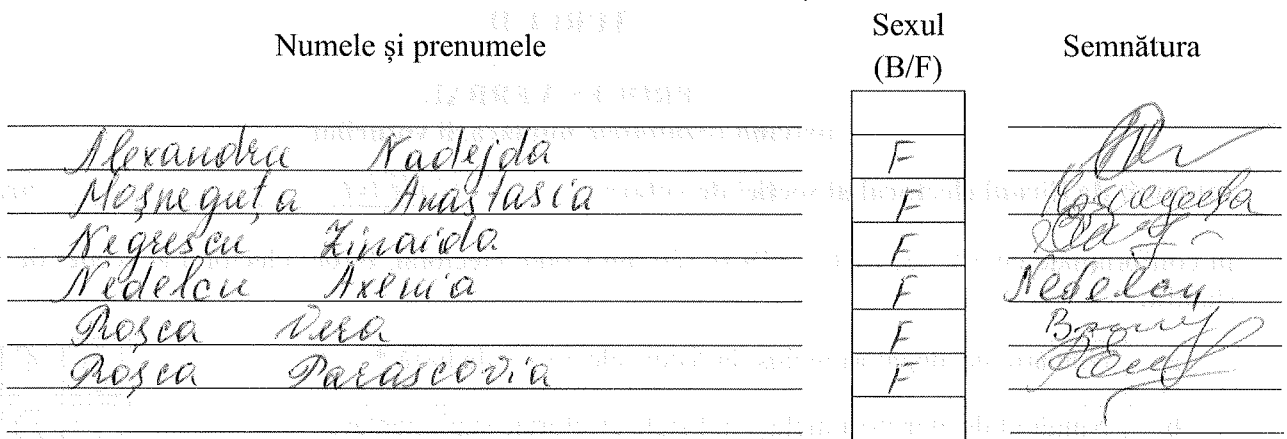 Numele și prenumele Sexul (B/F) Semnătura
Alexandru Nadejda F
Moșneguța Anastasia F
Negrescu Zinaida F
Nedelcu Axenia F Nedelcu
Roșca Vera F
Roșca Parascovia F